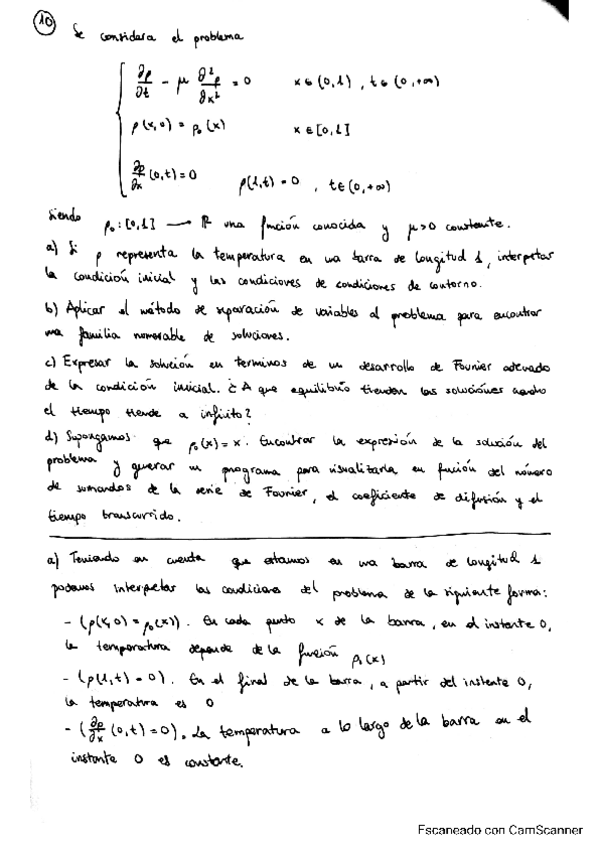 10
Se considera el problema
∂ρ/∂t - μ ∂²ρ/∂x² = 0    x ∈ (0,1), t ∈ (0,+∞)
ρ(x,0) = ρ₀(x)    x ∈ [0,1]
∂ρ/∂x (0,t) = 0    ρ(1,t) = 0, t ∈ (0,+∞)
siendo ρ₀: [0,1] → ℝ una función conocida y μ>0 constante.
a) Si ρ representa la temperatura en una barra de longitud 1, interpretar
la condición inicial y las condiciones de condiciones de contorno.
b) Aplicar el método de separación de variables al problema para encontrar
una familia numerable de soluciones.
c) Expresar la solución en terminos de un desarrollo de Fourier adecuado
de la condición inicial. ¿A que equilibrio tienden las soluciones cuando
el tiempo tiende a infinito?
d) Supongamos que ρ₀(x) = x. Encontrar la expresión de la solución del
problema y generar un programa para visualizarla en función del número
de sumandos de la serie de Fourier, el coeficiente de difusión y el
tiempo transcurrido.
a) Teniendo en cuenta que estamos en una barra de longitud 1
podemos interpretar las condiciones del problema de la siguiente forma:
- (ρ(x,0) = ρ₀(x)). En cada punto x de la barra, en el instante 0,
la temperatura depende de la función ρ₀(x)
- (ρ(1,t) = 0). En el final de la barra, a partir del instante 0,
la temperatura es 0
- (∂ρ/∂x (0,t) = 0). La temperatura a lo largo de la barra en el
instante 0 es constante.
Escaneado con CamScanner